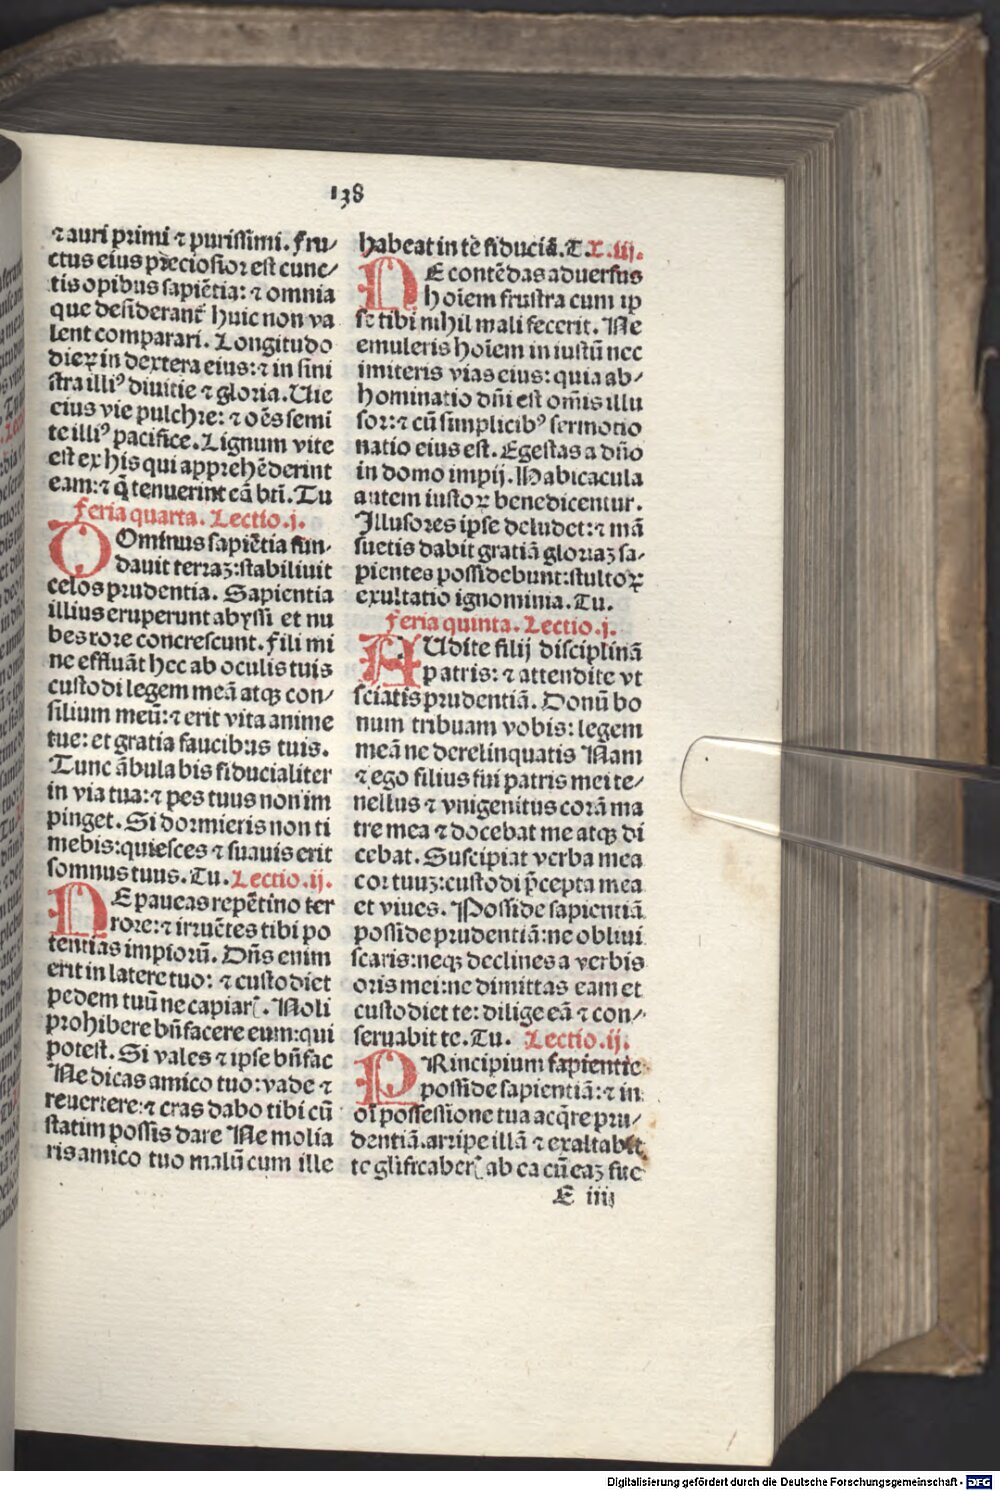 138
⁊ auri primi ⁊ purissimi. Fru/
ctus eius preciosior est cunc/
tis opibus sapiẽtia: ⁊ omnia
que desiderant᷑ huic non va
lent comparari. Longitudo
dieꝝ in dextera eius: ⁊ in sini
stra illiꝰ diuitie ⁊ gloria. Uie
eius vie pulchre: ⁊ oẽs semi
te illiꝰ pacifice. Lignum vite
est ex his qui apprehẽderint
eam: ⁊ q̃ tenuerint eã bt̃i. Tu
Feria quarta. Lectio .j.
Ominus sapiẽtia fun-
dauit terraꝫ: stabiliuit
celos prudentia. Sapientia
illius eruperunt abyssi et nu
bes rore concrescunt. Fili mi
ne effluãt hec ab oculis tuis
custodi legem meã atqꝫ con/
silium meũ: ⁊ erit vita anime
tue: et gratia faucibus tuis.
Tunc ãbulabis fiducialiter
in via tua: ⁊ pes tuus non im
pinget. Si dormieris non ti
mebis: quiesces ⁊ suauis erit
somnus tuus. Tu. Lectio .ij.
NE paueas repẽtino ter
rore: ⁊ irruẽtes tibi po
tentias impiorũ. Dñs enim
erit in latere tuo: ⁊ custodiet
pedem tuũ ne capiar᷑. Noli
prohibere bñfacere eum: qui
potest. Si vales ⁊ ipse bñfac
Ne dicas amico tuo: vade ⁊
reuertere: ⁊ cras dabo tibi cũ
statim possis dare Ne molia
ris amico tuo malũ cum ille
habeat in te fiduciã. T. L. iij.
NE contẽdas aduersus
hoĩem frustra cum ip
se tibi nihil mali fecerit. Ne
emuleris hoĩem iniustũ nec
imiteris vias eius: quia ab/
hominatio dñi est om̃is illu
sor: ⁊ cũ simplicibꝰ sermotio
natio eius est. Egestas a dño
in domo impij. Habitacula
autem iustoꝝ benedicentur.
Illusores ipse deludet: ⁊ mã
suetis dabit gratiã gloriaꝫ sa-
pientes possidebunt: stultoꝝ
exultatio ignominia. Tu.
Feria quinta. Lectio .j.
AUdite filij disciplinã
patris: ⁊ attendite vt
sciatis prudentiã. Donũ bo
num tribuam vobis: legem
meã ne derelinquatis Nam
⁊ ego filius fui patris mei te/
nellus ⁊ vnigenitus corã ma
tre mea ⁊ docebat me atqꝫ di
cebat. Suscipiat verba mea
cor tuuꝫ: custodi p̃cepta mea
et viues. Posside sapientiã
posside prudentiã: ne obliui
scaris: neqꝫ declines a verbis
oris mei: ne dimittas eam et
custodiet te: dilige eã ⁊ con/
seruabit te. Tu. Lectio .ij.
PRincipium sapientie
posside sapientiã: ⁊ in
oĩ possessione tua acq̃re pru/
dentiã. arripe illã ⁊ exaltabit
te glĩficaber᷑ ab ea cũ eaꝫ fue
E iiij
Digitalisierung gefördert durch die Deutsche Forschungsgemeinschaft - DFG